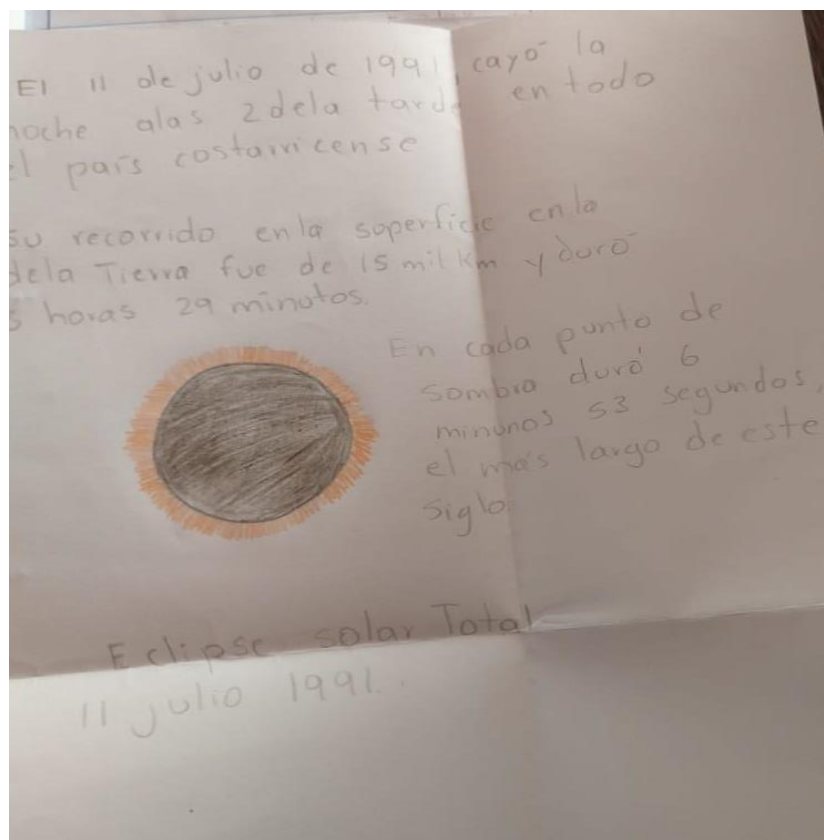 El 11 de julio de 1991, cayó la
noche alas 2 dela tarde en todo
el país costarricense
su recorrido enla superficie enla
dela Tierra fue de 15 mil Km y duró
3 horas 29 minutos.
En cada punto de
sombra duró 6
minunos 53 segundos,
el más largo de este
siglo
Eclipse solar Total
11 julio 1991.